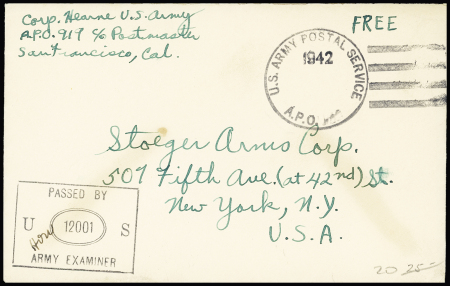 Corp. Hearne U.S. Army
A.P.O. 917 c/o Postmaster
San Francisco, Cal.
FREE
U.S. ARMY POSTAL SERVICE
1942
A.P.O.
Stoeger Arms Corp.
507 Fifth Ave. (at 42nd) St.
New York, N.Y.
U.S.A.
PASSED BY
U 12001 S
ARMY EXAMINER
20 25-